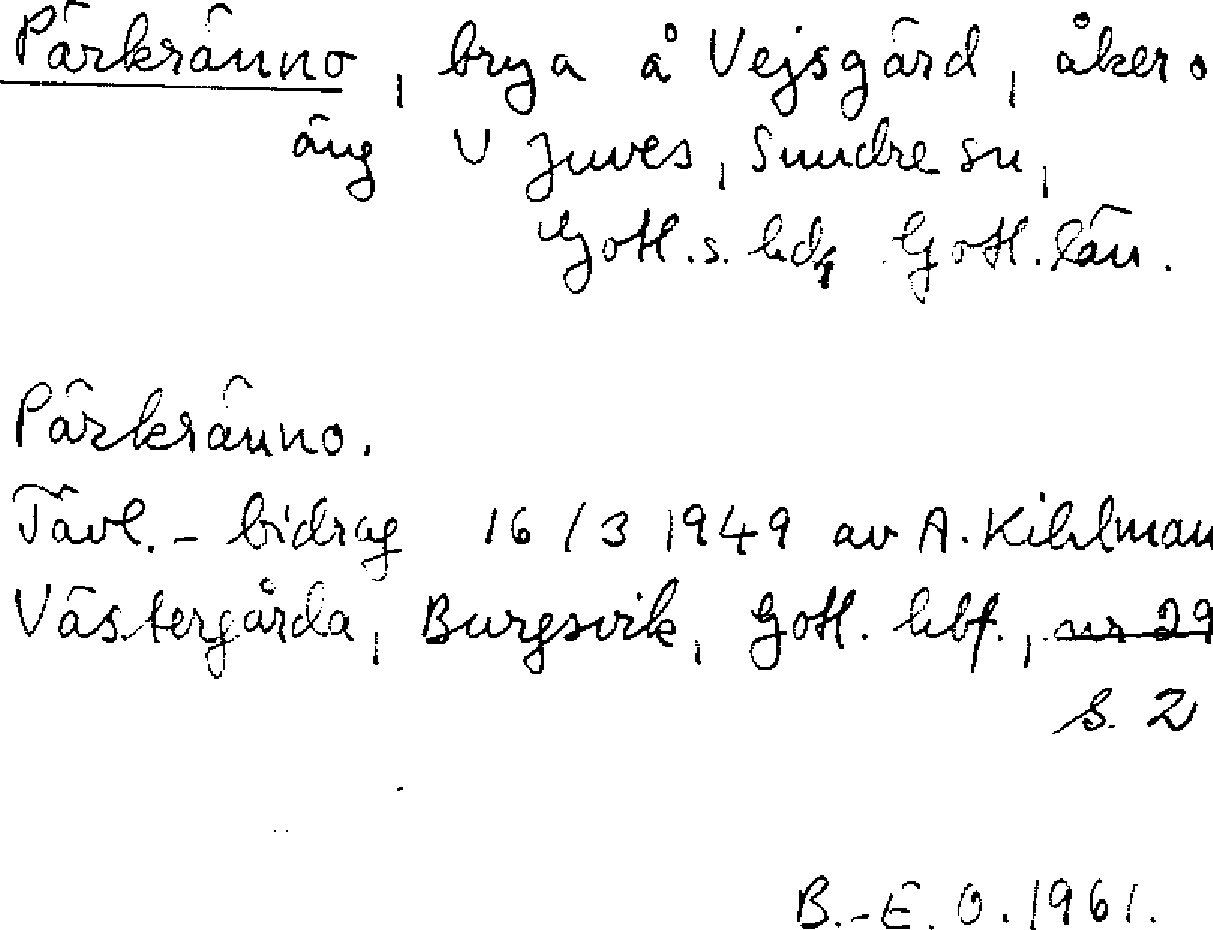 Pärkränno, brya å Vejsgärd, åker o
äng V Juves, Sundre sn,
Gotl. s. hd, Gotl. län.
Pärkränno.
Tävl. - bidrag 16/3 1949 av A. Kihlman
Västergårda, Burgsvik, Gotl. hbf., nr 29
s. 2
B.-E. O. 1961.